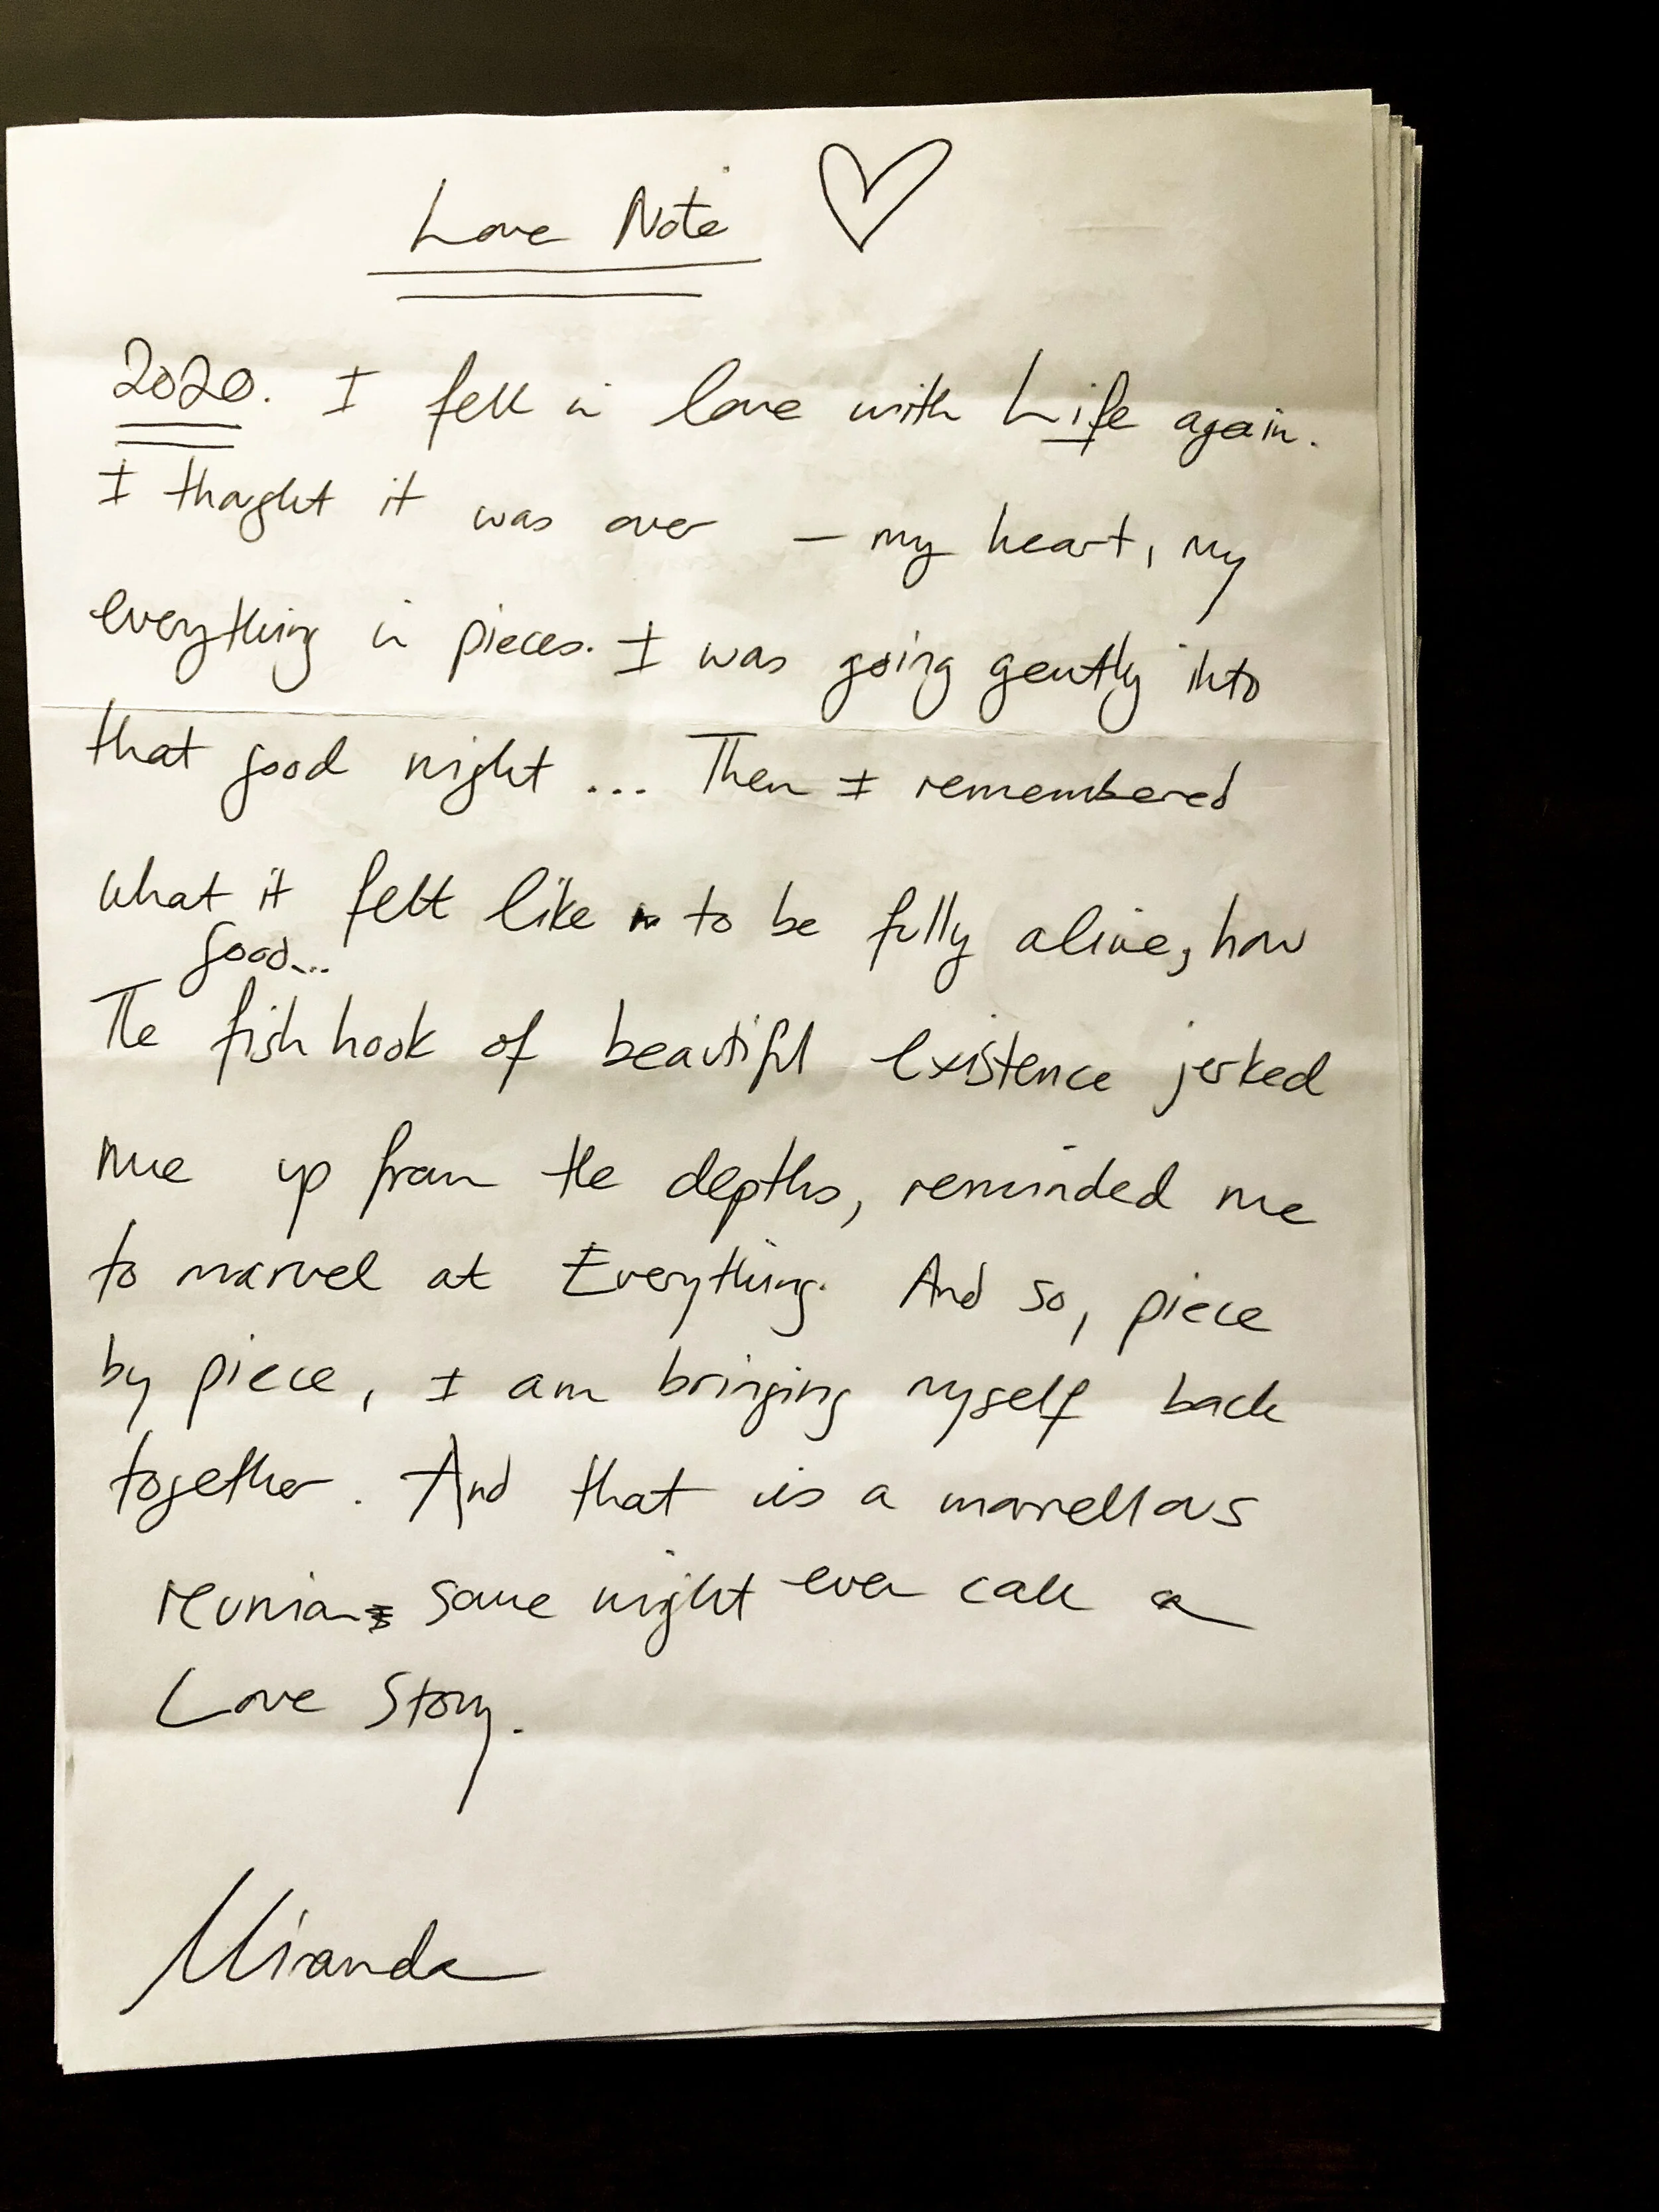 Love Note
2020. I fell in love with Life again.
I thought it was over – my heart, my
everything in pieces. I was going gently into
that good night ... Then I remembered
what it felt like to be fully alive, how
good...
The fishhook of beautiful existence jerked
me up from the depths, reminded me
to marvel at Everything. And so, piece
by piece, I am bringing myself back
together. And that is a marvellous
reunion some might even call a
Love Story.
Miranda